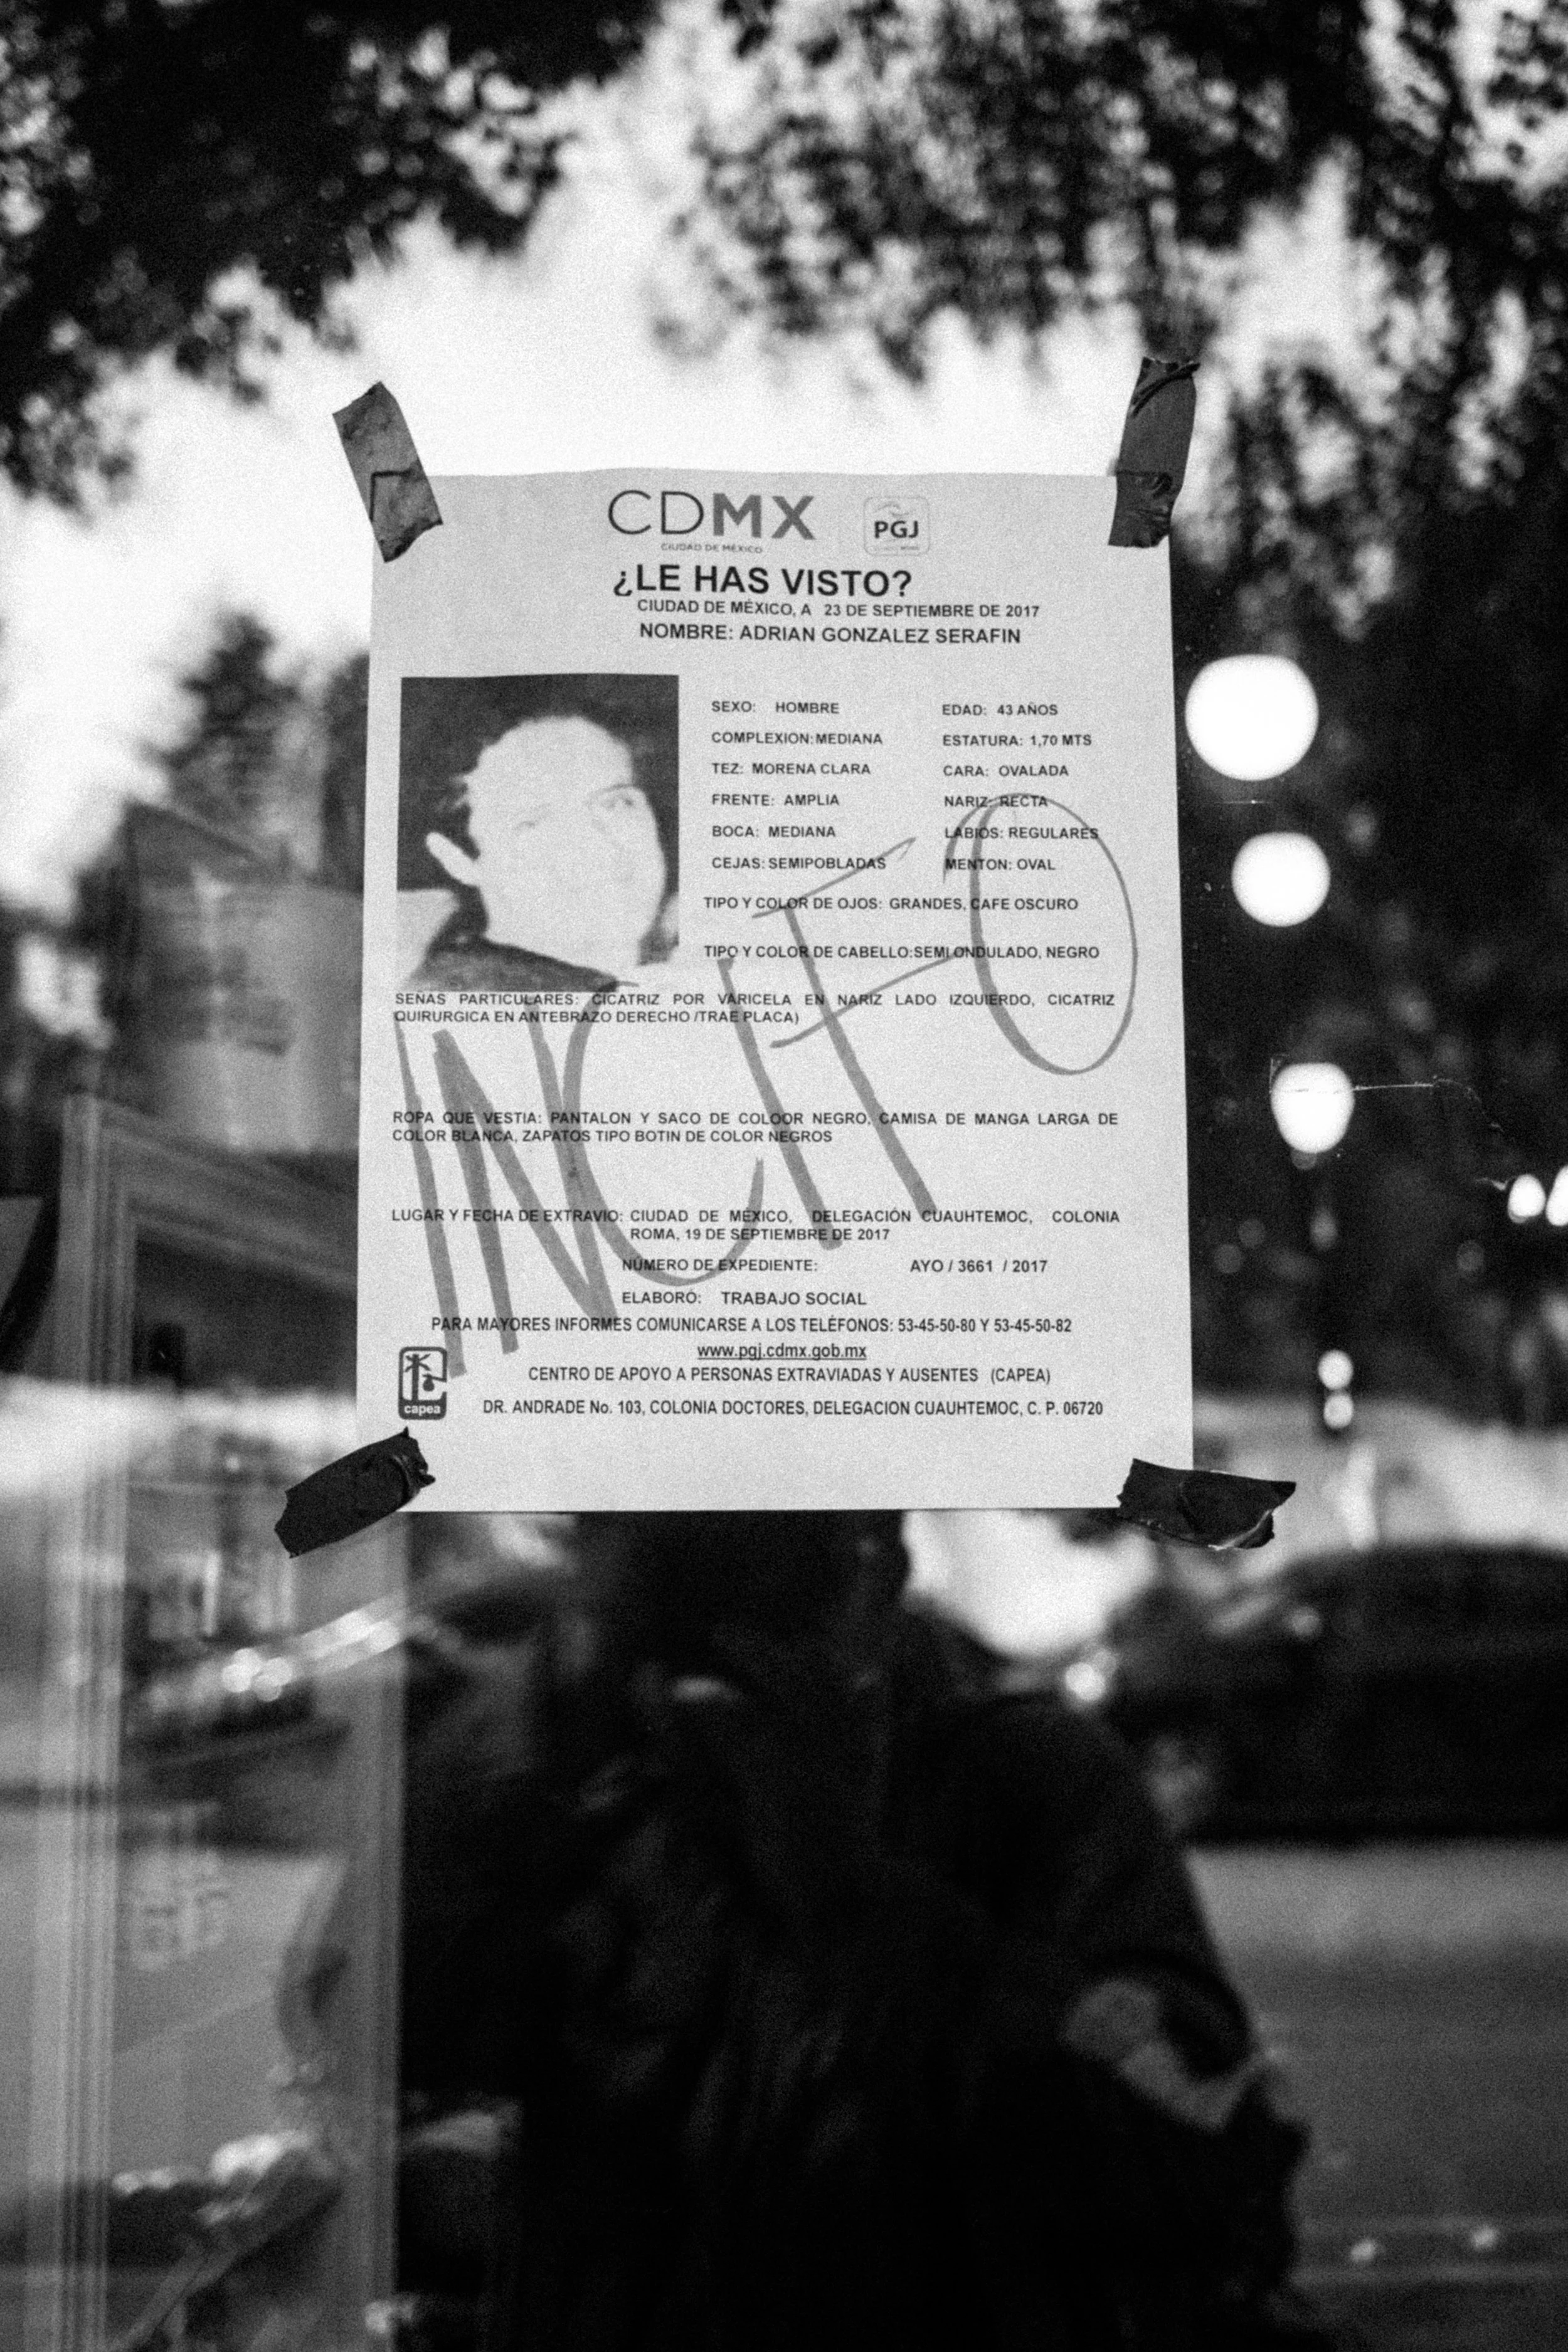 CDMX
CIUDAD DE MÉXICO
PGJ
¿LE HAS VISTO?
CIUDAD DE MÉXICO, A 23 DE SEPTIEMBRE DE 2017
NOMBRE: ADRIAN GONZALEZ SERAFIN
SEXO: HOMBRE EDAD: 43 AÑOS
COMPLEXION: MEDIANA ESTATURA: 1,70 MTS
TEZ: MORENA CLARA CARA: OVALADA
FRENTE: AMPLIA NARIZ: RECTA
BOCA: MEDIANA LABIOS: REGULARES
CEJAS: SEMIPOBLADAS MENTON: OVAL
TIPO Y COLOR DE OJOS: GRANDES, CAFE OSCURO
TIPO Y COLOR DE CABELLO: SEMI ONDULADO, NEGRO
SEÑAS PARTICULARES: CICATRIZ POR VARICELA EN NARIZ LADO IZQUIERDO, CICATRIZ
QUIRURGICA EN ANTEBRAZO DERECHO /TRAE PLACA)
ROPA QUE VESTIA: PANTALON Y SACO DE COLOOR NEGRO, CAMISA DE MANGA LARGA DE
COLOR BLANCA, ZAPATOS TIPO BOTIN DE COLOR NEGROS
LUGAR Y FECHA DE EXTRAVIO: CIUDAD DE MÉXICO, DELEGACIÓN CUAUHTEMOC, COLONIA
ROMA, 19 DE SEPTIEMBRE DE 2017
NÚMERO DE EXPEDIENTE: AYO / 3661 / 2017
ELABORÓ: TRABAJO SOCIAL
PARA MAYORES INFORMES COMUNICARSE A LOS TELÉFONOS: 53-45-50-80 Y 53-45-50-82
www.pgj.cdmx.gob.mx
CENTRO DE APOYO A PERSONAS EXTRAVIADAS Y AUSENTES (CAPEA)
capea
DR. ANDRADE No. 103, COLONIA DOCTORES, DELEGACION CUAUHTEMOC, C. P. 06720